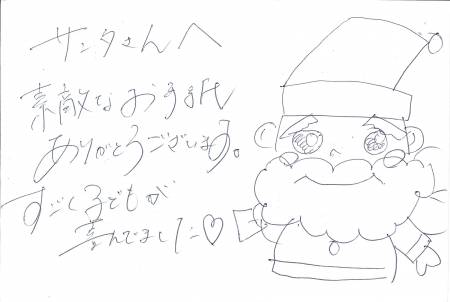 サンタさんへ
素敵なお手紙
ありがとうございます。
すごく子どもが
喜んでました♡